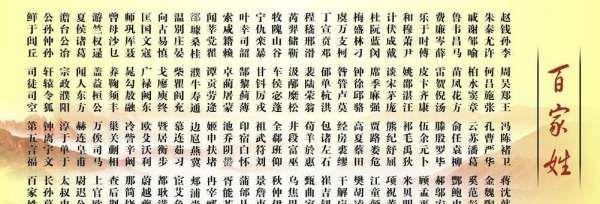 百家姓
赵钱孙李 周吴郑王 冯陈褚卫 蒋沈韩
朱秦尤许 何吕施张 孔曹严华 金魏陶
戚谢邹喻 柏水窦章 云苏潘葛 奚范彭
鲁韦昌马 苗凤花方 俞任袁柳 酆鲍史
费廉岑薛 雷贺倪汤 滕殷罗毕 郝邬安
乐于时傅 皮卞齐康 伍余元卜 顾孟平
和穆萧尹 姚邵湛汪 祁毛禹狄 米贝明
计伏成戴 谈宋茅庞 熊纪舒屈 项祝董
杜阮蓝闵 席季麻强 贾路娄危 江童颜
梅盛林刁 钟徐邱骆 高夏蔡田 樊胡凌
虞万支柯 昝管卢莫 经房裘缪 干解应
丁宣贲邓 郁单杭洪 包诸左石 崔吉钮
程嵇邢滑 裴陆荣翁 荀羊於惠 甄曲家
芮羿储靳 汲邴糜松 井段富巫 乌焦巴
牧隗山谷 车侯宓蓬 全郗班仰 秋仲伊
宁仇栾暴 甘钭厉戎 祖武符刘 景詹束
叶幸司韶 郜黎蓟薄 印宿白怀 蒲邰从
索咸籍赖 卓蔺屠蒙 池乔阴 胥能苍
闻莘党翟 谭贡劳逄 姬申扶堵 冉宰郦
璩桑桂 濮牛寿通 边扈燕冀 郏浦尚
温别庄晏 柴瞿阎充 慕连茹习 宦艾鱼
向古易慎 戈廖庾终 暨居衡步 都耿满
匡国文寇 广禄阙东 欧殳沃利 蔚越夔
师巩厍聂 晁勾敖融 冷訾辛阚 那简饶
曾毋沙乜 养鞠须丰 巢关蒯相 查后荆
游竺权逯 盖益桓公 万俟司马 上官欧
夏侯诸葛 闻人东方 赫连皇甫 尉迟公
澹台公冶 宗政濮阳 淳于单于 太叔申
公孙仲孙 轩辕令狐 钟离宇文 长孙慕
鲜于闾丘 司徒司空 第五言福 百家姓